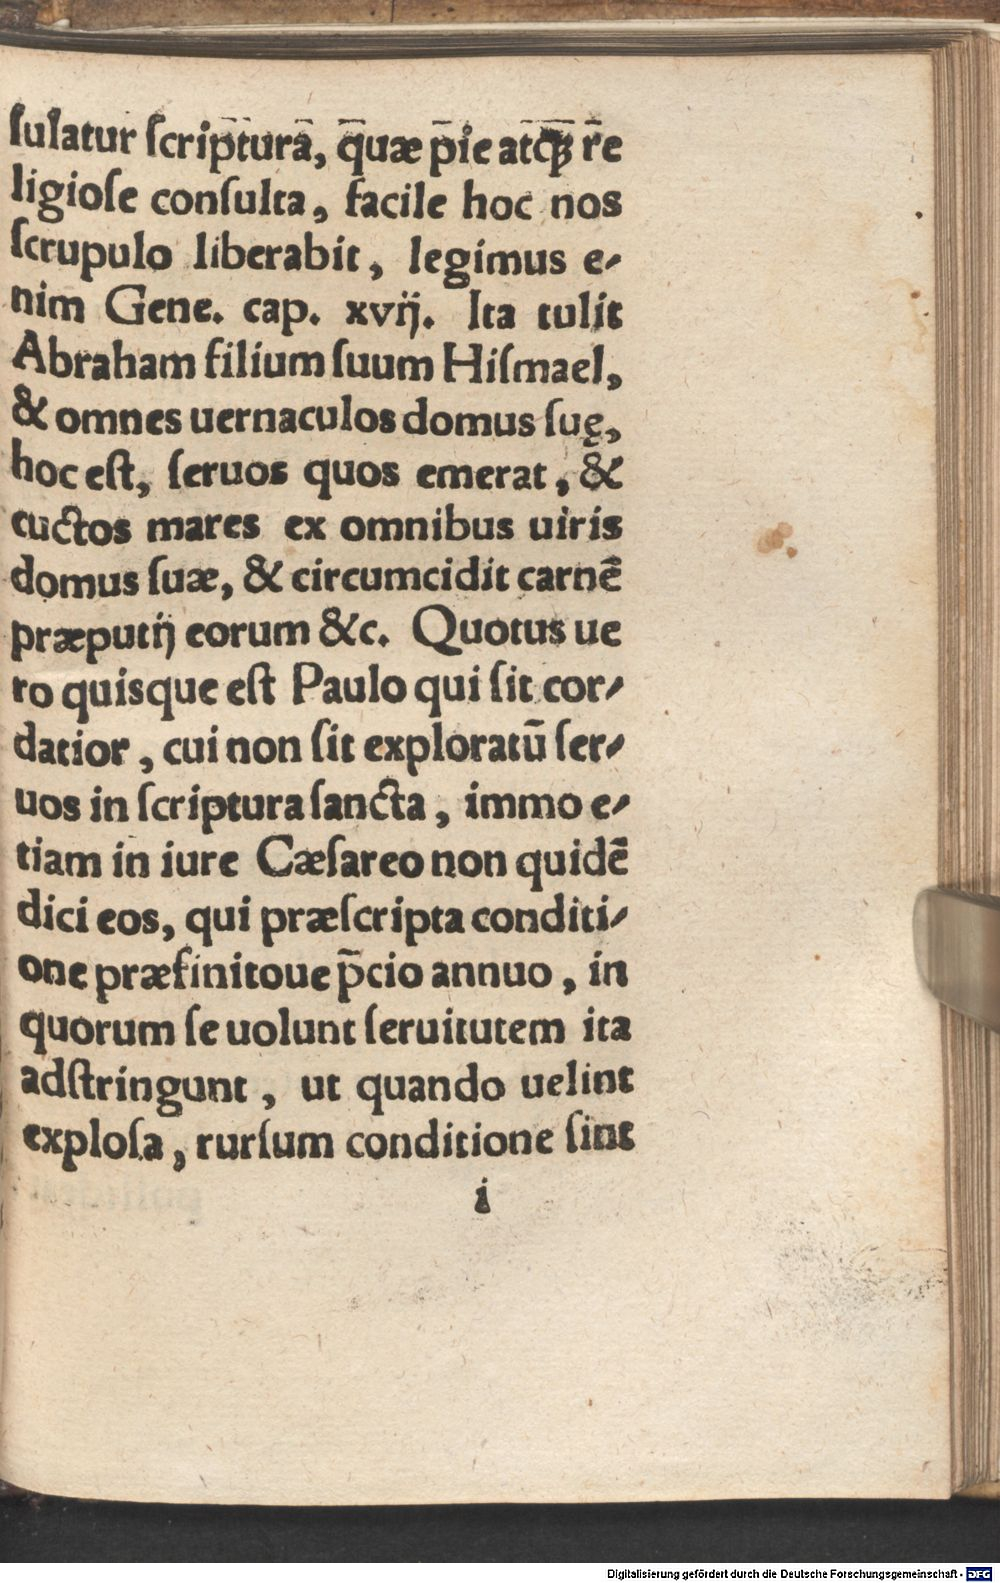 ſulatur ſcriptura, quæ pie atq́ꝫ re
ligioſe conſulta, facile hoc nos
ſcrupulo liberabit, legimus e-
nim Gene. cap. xvij. Ita tulit
Abraham filium ſuum Hiſmael,
& omnes uernaculos domus ſuę,
hoc eſt, ſeruos quos emerat, &
cuctos mares ex omnibus uiris
domus ſuæ, & circumcidit carnē
præputij eorum &c. Quotus ue
ro quisque eſt Paulo qui ſit cor-
datior, cui non ſit exploratū ſer-
uos in ſcriptura ſancta, immo e-
tiam in iure Cæſareo non quidē
dici eos, qui præſcripta conditi-
one præfinitoue p̄cio annuo, in
quorum ſe uolunt ſeruitutem ita
adſtringunt, ut quando uelint
exploſa, rurſum conditione ſint
i
Digitalisierung gefördert durch die Deutsche Forschungsgemeinschaft - DFG